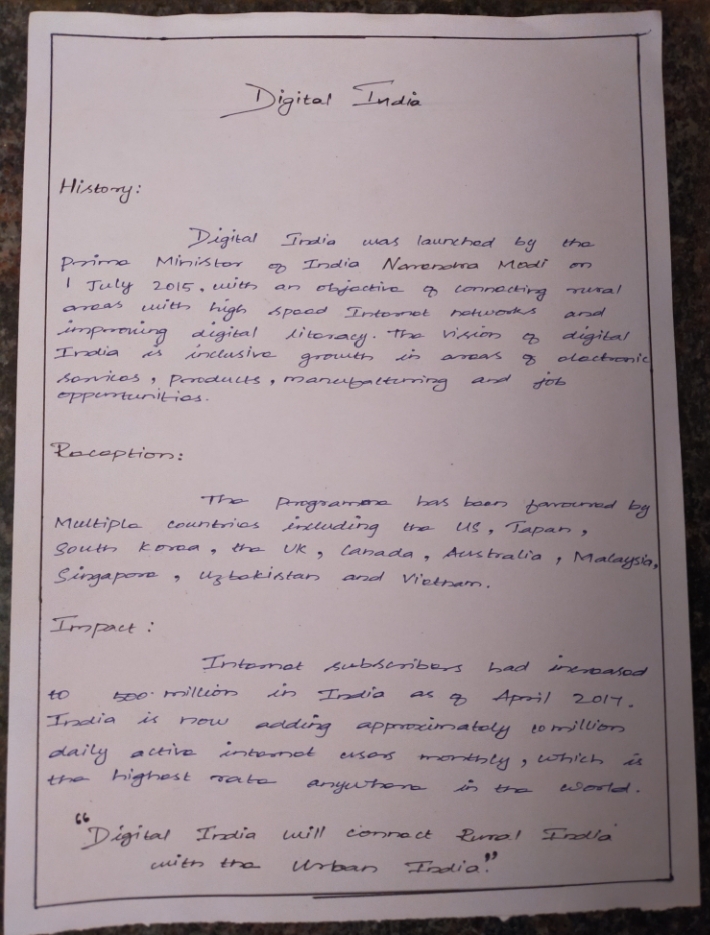 Digital India
History:
Digital India was launched by the
Prime Minister of India Narendra Modi on
1 July 2015, with an objective of connecting rural
areas with high speed Internet networks and
improving digital literacy. The vision of digital
India is inclusive growth in areas of electronic
services, products, manufacturing and job
opportunities.
Reception:
The programme has been favoured by
Multiple countries including the US, Japan,
South Korea, the UK, Canada, Australia, Malaysia,
Singapore, Uzbekistan and Vietnam.
Impact:
Internet subscribers had increased
to 500 million in India as of April 2017.
India is now adding approximately 10 million
daily active internet users monthly, which is
the highest rate anywhere in the world.
"Digital India will connect Rural India
with the Urban India."